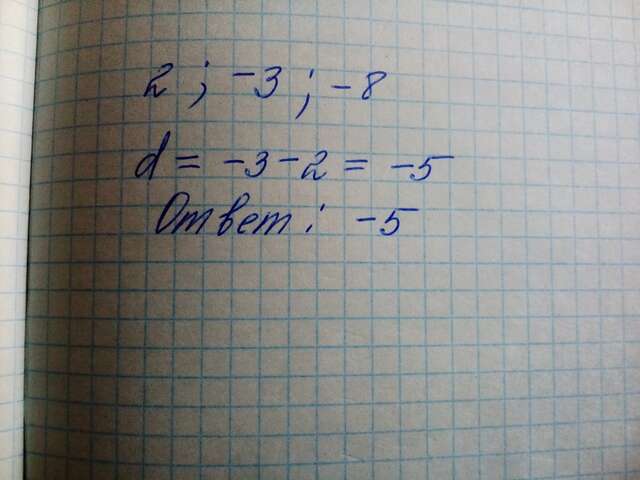 2 ; -3 ; -8
d = -3 - 2 = -5
Ответ: -5